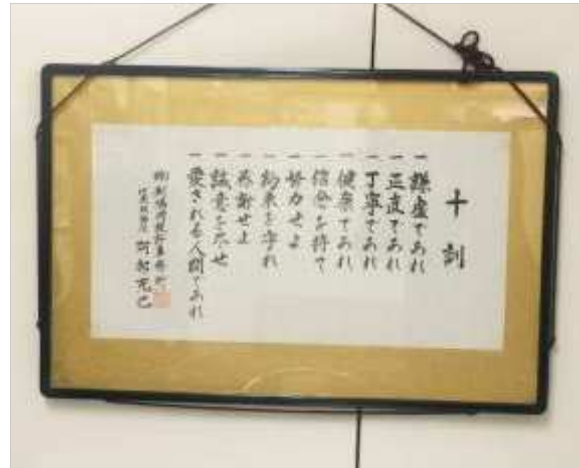 十訓
一 謙虚であれ
一 正直であれ
一 丁寧であれ
一 健康であれ
一 信念を持て
一 努力せよ
一 約束を守れ
一 感謝せよ
一 誠意を尽せ
一 愛される人間であれ